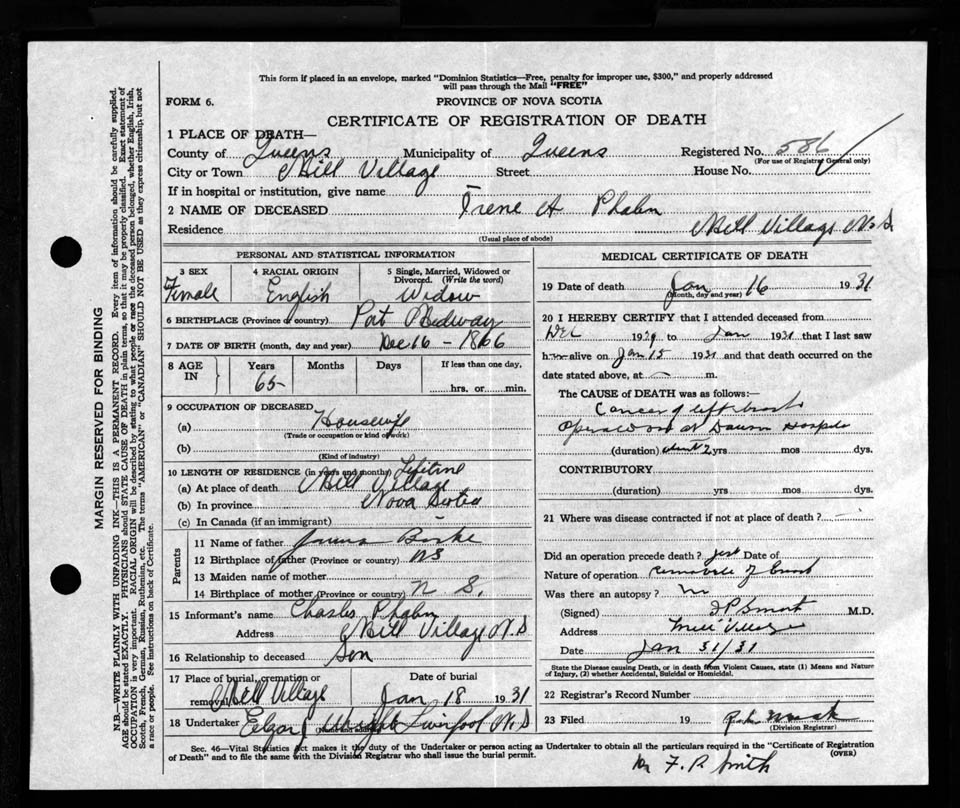 This form if placed in an envelope, marked "Dominion Statistics—Free, penalty for improper use, $300," and properly addressed
will pass through the Mail "FREE"
FORM 6.
PROVINCE OF NOVA SCOTIA
CERTIFICATE OF REGISTRATION OF DEATH
1 PLACE OF DEATH—
County of Queens Municipality of Queens Registered No. 586
(For use of Registrar General only)
City or Town Mill Village Street House No.
If in hospital or institution, give name
2 NAME OF DECEASED Irene A
Residence Mill Village N.S.
(Usual place of abode)
PERSONAL AND STATISTICAL INFORMATION
3 SEX 4 RACIAL ORIGIN 5 Single, Married, Widowed or
Divorced. (Write the word)
Female English Widow
6 BIRTHPLACE (Province or country) Port Medway
7 DATE OF BIRTH (month, day and year) Dec 16 - 1866
8 AGE IN Years Months Days If less than one day,
65 hrs. or min.
9 OCCUPATION OF DECEASED
(a) Housewife
(Trade or occupation or kind of work)
(b)
(Kind of industry)
10 LENGTH OF RESIDENCE (in years and months) Lifetime
(a) At place of death Mill Village
(b) In province Nova Scotia
(c) In Canada (if an immigrant) -
Parents
11 Name of father
12 Birthplace of father (Province or country) NS
13 Maiden name of mother
14 Birthplace of mother (Province or country) N S.
15 Informant's name Charles
Address Mill Village N.S
16 Relationship to deceased Son
17 Place of burial, cremation or Date of burial
removal Mill Village Jan 18 1931
18 Undertaker Liverpool N.S
(Name and address)
MEDICAL CERTIFICATE OF DEATH
19 Date of death Jan 16 1931
(Month, day and year)
20 I HEREBY CERTIFY that I attended deceased from
Dec to Jan 1931 that I last saw
h alive on Jan 15 1931 and that death occurred on the
date stated above, at — m.
The CAUSE of DEATH was as follows:—
Cancer of left breast
Operation at Dawson Hospital
(duration) about 2 yrs mos dys.
CONTRIBUTORY
(duration) yrs mos dys.
21 Where was disease contracted if not at place of death?
Did an operation precede death? yes Date of
Nature of operation of breast
Was there an autopsy? no
(Signed) M.D.
Address Mill Village
Date Jan 31/31
State the Disease causing Death, or in death from Violent Causes, state (1) Means and Nature
of Injury, (2) whether Accidental, Suicidal or Homicidal.
22 Registrar's Record Number
23 Filed 19
(Division Registrar)
Sec. 46—Vital Statistics Act makes it the duty of the Undertaker or person acting as Undertaker to obtain all the particulars required in the "Certificate of Registration
of Death" and to file the same with the Division Registrar who shall issue the burial permit.
F. P. Smith
MARGIN RESERVED FOR BINDING
N.B.—WRITE PLAINLY WITH UNFADING INK—THIS IS A PERMANENT RECORD. Every item of information should be carefully supplied.
AGE should be stated EXACTLY. PHYSICIANS should STATE CAUSE OF DEATH in plain terms, so that it may be properly classified. Exact statement of
OCCUPATION is very important. RACIAL ORIGIN will be described by stating to what people or race the deceased person belonged, whether English, Irish,
Scotch, French, German, Russian, Ruthenian, etc. The terms "AMERICAN" or "CANADIAN" SHOULD NOT BE USED as they express citizenship, but not
a race or people. See instructions on back of Certificate.